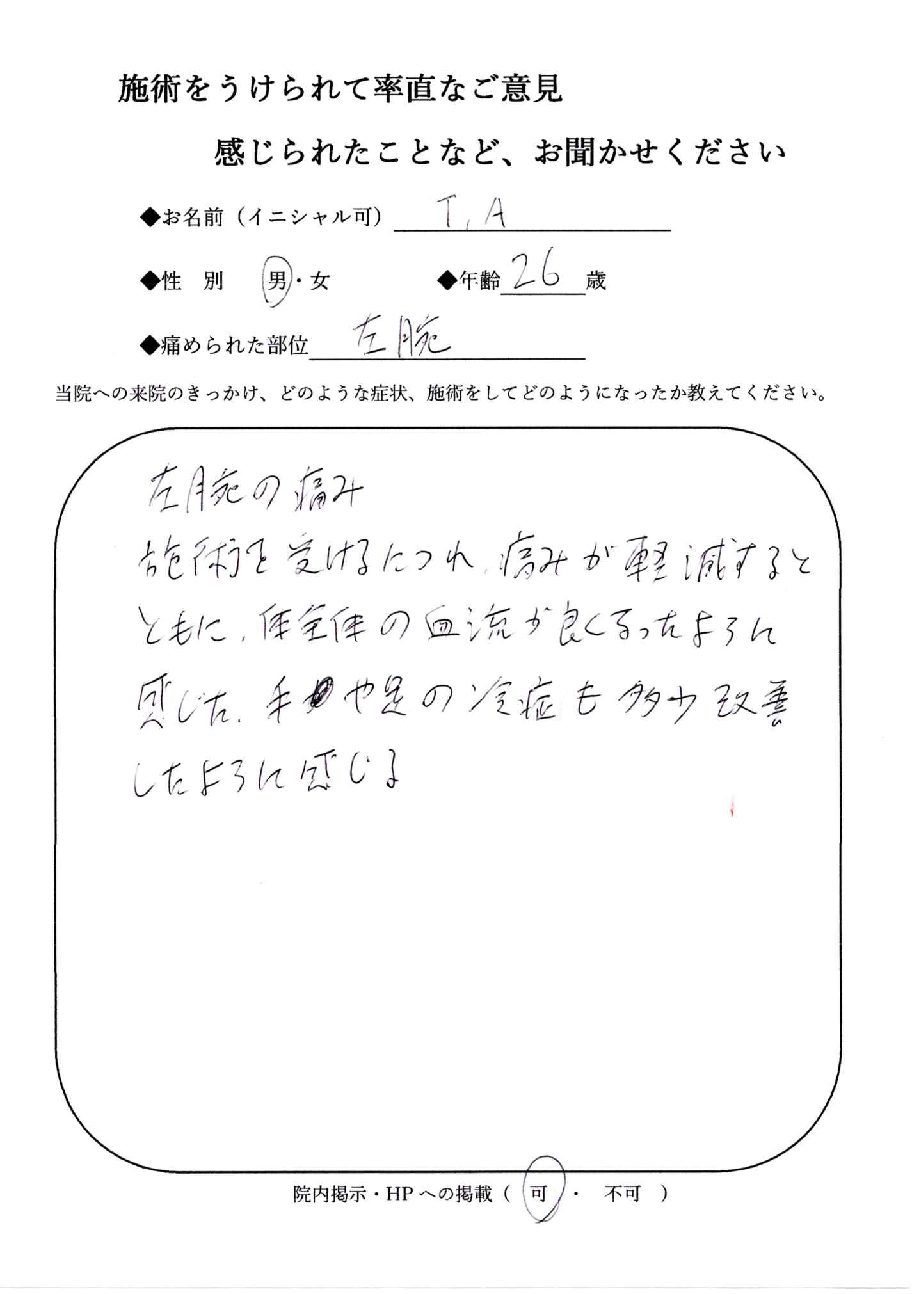 施術をうけられて率直なご意見
感じられたことなど、お聞かせください
◆お名前（イニシャル可） T.A
◆性　別　男・女　◆年齢 26 歳
◆痛められた部位 左腕
当院への来院のきっかけ、どのような症状、施術をしてどのようになったか教えてください。
左腕の痛み
施術を受けるにつれ、痛みが軽減すると
ともに、体全体の血流が良くなったように
感じた、手や足の冷症も多少改善
したように感じる
院内掲示・HPへの掲載（　可　・　不可　）